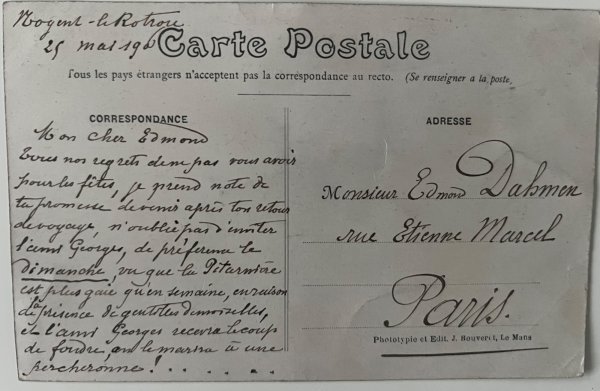 Nogent-le-Rotrou
25 mai 190
Carte Postale
Tous les pays étrangers n'acceptent pas la correspondance au recto. (Se renseigner a la poste,
CORRESPONDANCE
Mon cher Edmond
Tous nos regrets de ne pas vous avoir
pour les fêtes, je prend note de
ta promesse de venir après ton retour
de voyage, n'oublie pas d'inviter
l'ami Georges, de préférence le
dimanche, vu que la
est plus gaie qu'en semaine, en raison
de la présence de gentilles demoiselles,
et l'ami Georges recevra le coup
de foudre, on le mariera à une
percheronne !......
ADRESSE
Monsieur Edmond Dahmen
rue Etienne Marcel
Paris.
Phototypie et Edit. J. Bouveret, Le Mans